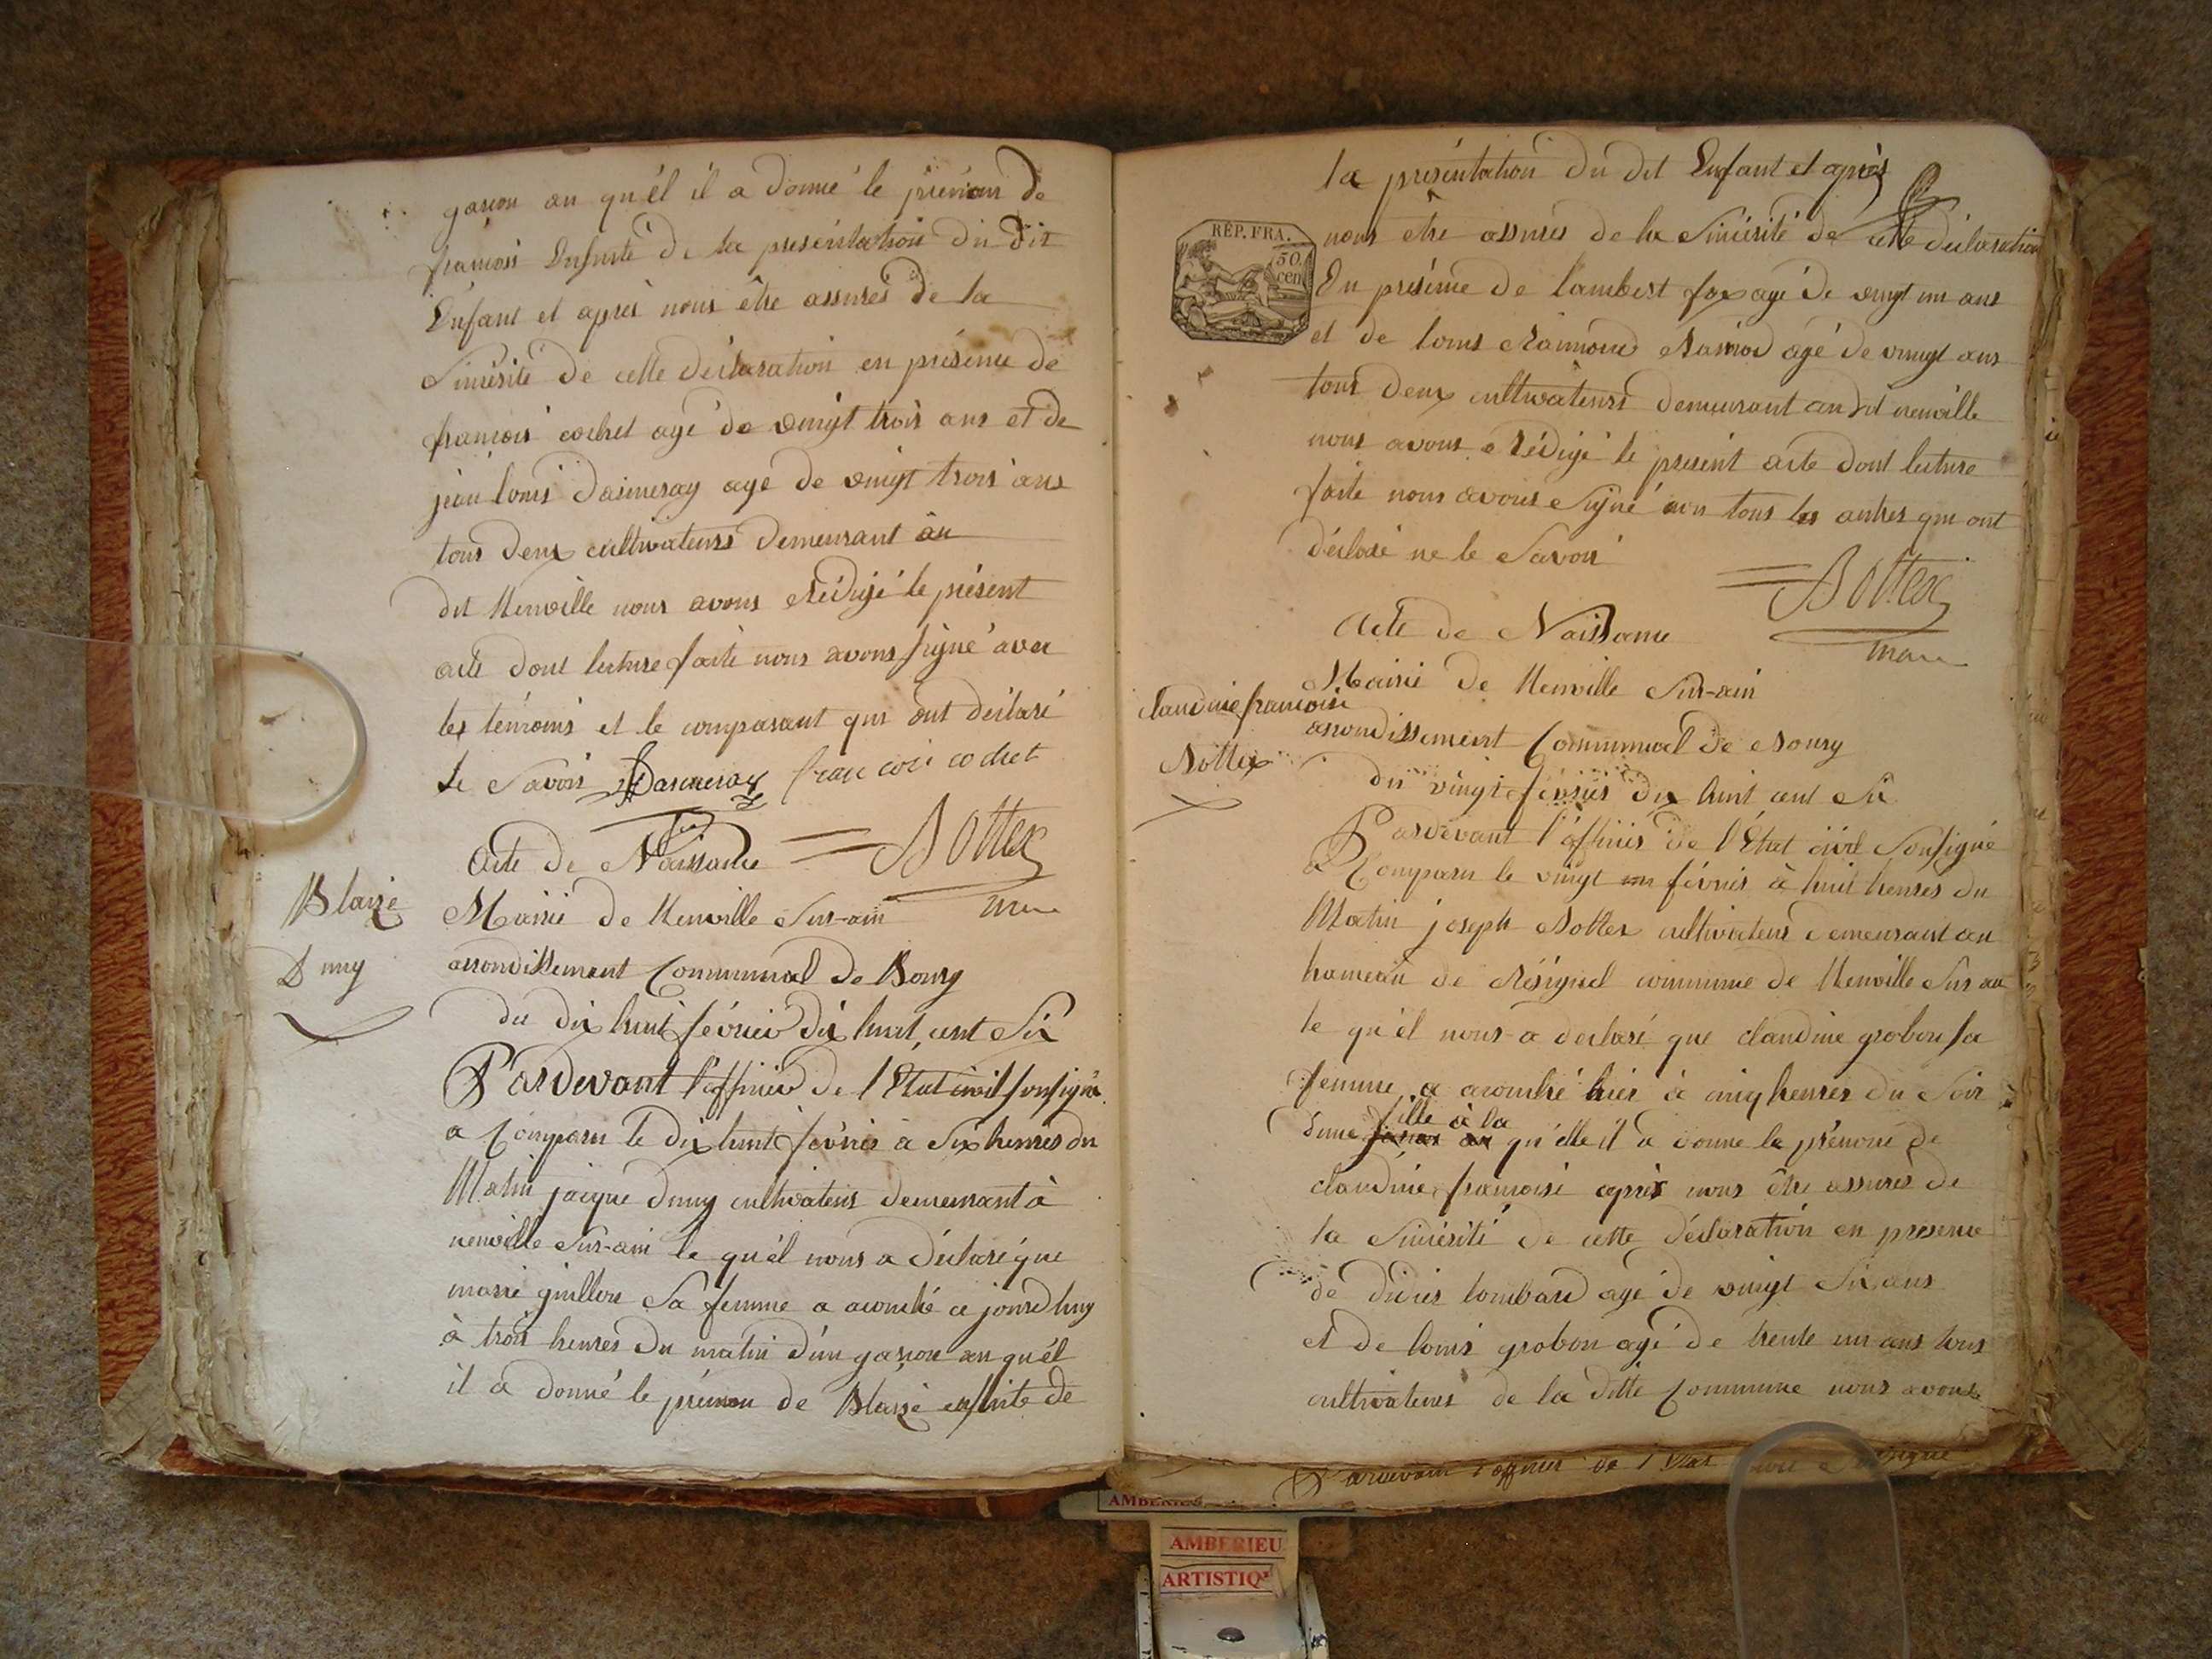 garcon au qu'él il a donné le prénom de
francois Ensuite de la présentation du dit
Enfant et après nous être assurés de la
Sincérité de cette déclaration en présence de
francois cochet agé de vingt trois ans et de
jean louis daimeray agé de vingt trois ans
tous deux cultivateurs demeurant au
dit Neuville nous avons Rédigé le présent
acte dont lecture faite nous avons signé avec
les témoins et le comparant qui ont déclaré
le Savoir Dasmeray francois cochet
Acte de Naissance Bottex
Blaize
Mairie de Neuville Sur-ain maire
Duny
arrondissement Communal de Bourg
du dix huit février dix huit cent Six
Pardevant l'officier de l'Etat civil sousigné
a Comparu le dix huit février à Six heures du
Matin jacque Duny cultivateur demeurant à
neuville Sur-ain le qu'él nous a déclaré que
marie guillon Sa femme a acouché ce jourdhuy
à trois heures du matin d'un garcon au qu'él
il a donné le prénom de Blaize ensuite de
la présentation du dit Enfant et après
RÉP. FRA.
50
cen
nous être assurés de la Sincérité de cette déclaration
En présence de lambert foy agé de vingt un ans
et de louis Raimond Ramod agé de vingt ans
tous deux cultivateurs demeurant au dit neuville
nous avons Rédigé le présent acte dont lecture
faite nous avons Signé non tous les autres qui ont
déclaré ne le Savoir
Bottex
maire
Acte de Naissance
Mairie de Neuville Sur-ain
claudine francoise
arrondissement Communal de Bourg
Bottex
du vingt février dix huit cent Six
Pardevant l'officier de l'Etat civil Sousigné
a Comparu le vingt un février à huit heures du
Matin joseph Bottex cultivateur demeurant au
hameau de Résignel commune de Neuville Sur ain
le qu'él nous a declaré que claudine grobon sa
femme a acouché hier à cinq heures du Soir
fille à la
d'une garcon au qu'elle il a donné le prénom de
claudine francoise après nous être assurés de
la Sincérité de cette déclaration en présence
de didier lombard agé de vingt Six ans
et de louis grobon agé de trente un ans tous
cultivateurs de la ditte Commune nous avons
Pardevant l'officier de l'Etat civil Sousigné
AMBERIEU
AMBERIEU
ARTISTIQ